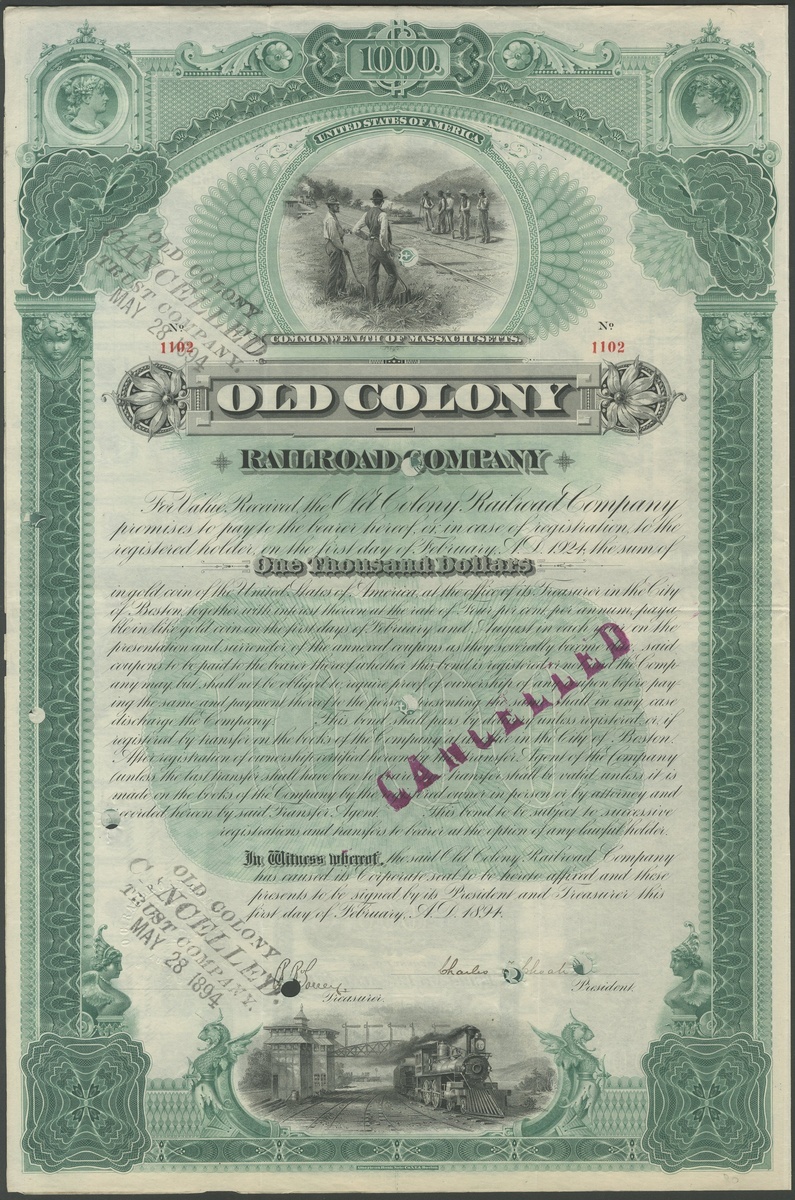 1000.
UNITED STATES OF AMERICA
COMMONWEALTH OF MASSACHUSETTS.
OLD COLONY
CANCELLED
TRUST COMPANY.
MAY 28 1894
No
1102
No
1102
OLD COLONY
RAILROAD COMPANY
For Value Received, the Old Colony Railroad Company
promises to pay to the bearer hereof, or, in case of registration, to the
registered holder, on the first day of February, A.D. 1924, the sum of
One Thousand Dollars
in gold coin of the United States of America, at the office of its Treasurer in the City
of Boston, together with interest thereon at the rate of Four per cent per annum, paya
ble in like gold coin on the first days of February and August in each year, on the
presentation and surrender of the annexed coupons as they severally become due, said
coupons to be paid to the bearer thereof whether this bond is registered or not but the Comp
any may, but shall not be obliged to, require proof of ownership of any coupon before pay
ing the same and payment thereof to the person presenting the same shall in any case
discharge the Company. This bond shall pass by delivery unless registered, or, if
registered by transfer on the books of the Company at its office in the City of Boston.
After registration of ownership certified hereon by the Transfer Agent of the Company
(unless the last transfer shall have been to bearer) no transfer shall be valid unless it is
made on the books of the Company by the registered owner in person or by attorney and
recorded hereon by said Transfer Agent. This bond to be subject to successive
registrations and transfers to bearer at the option of any lawful holder.
CANCELLED
In Witness whereof, the said Old Colony Railroad Company
has caused its Corporate seal to be hereto affixed and these
presents to be signed by its President and Treasurer this
first day of February, A.D. 1894.
OLD COLONY
CANCELLED
TRUST COMPANY.
MAY 28 1894
Charles
Treasurer.
President.